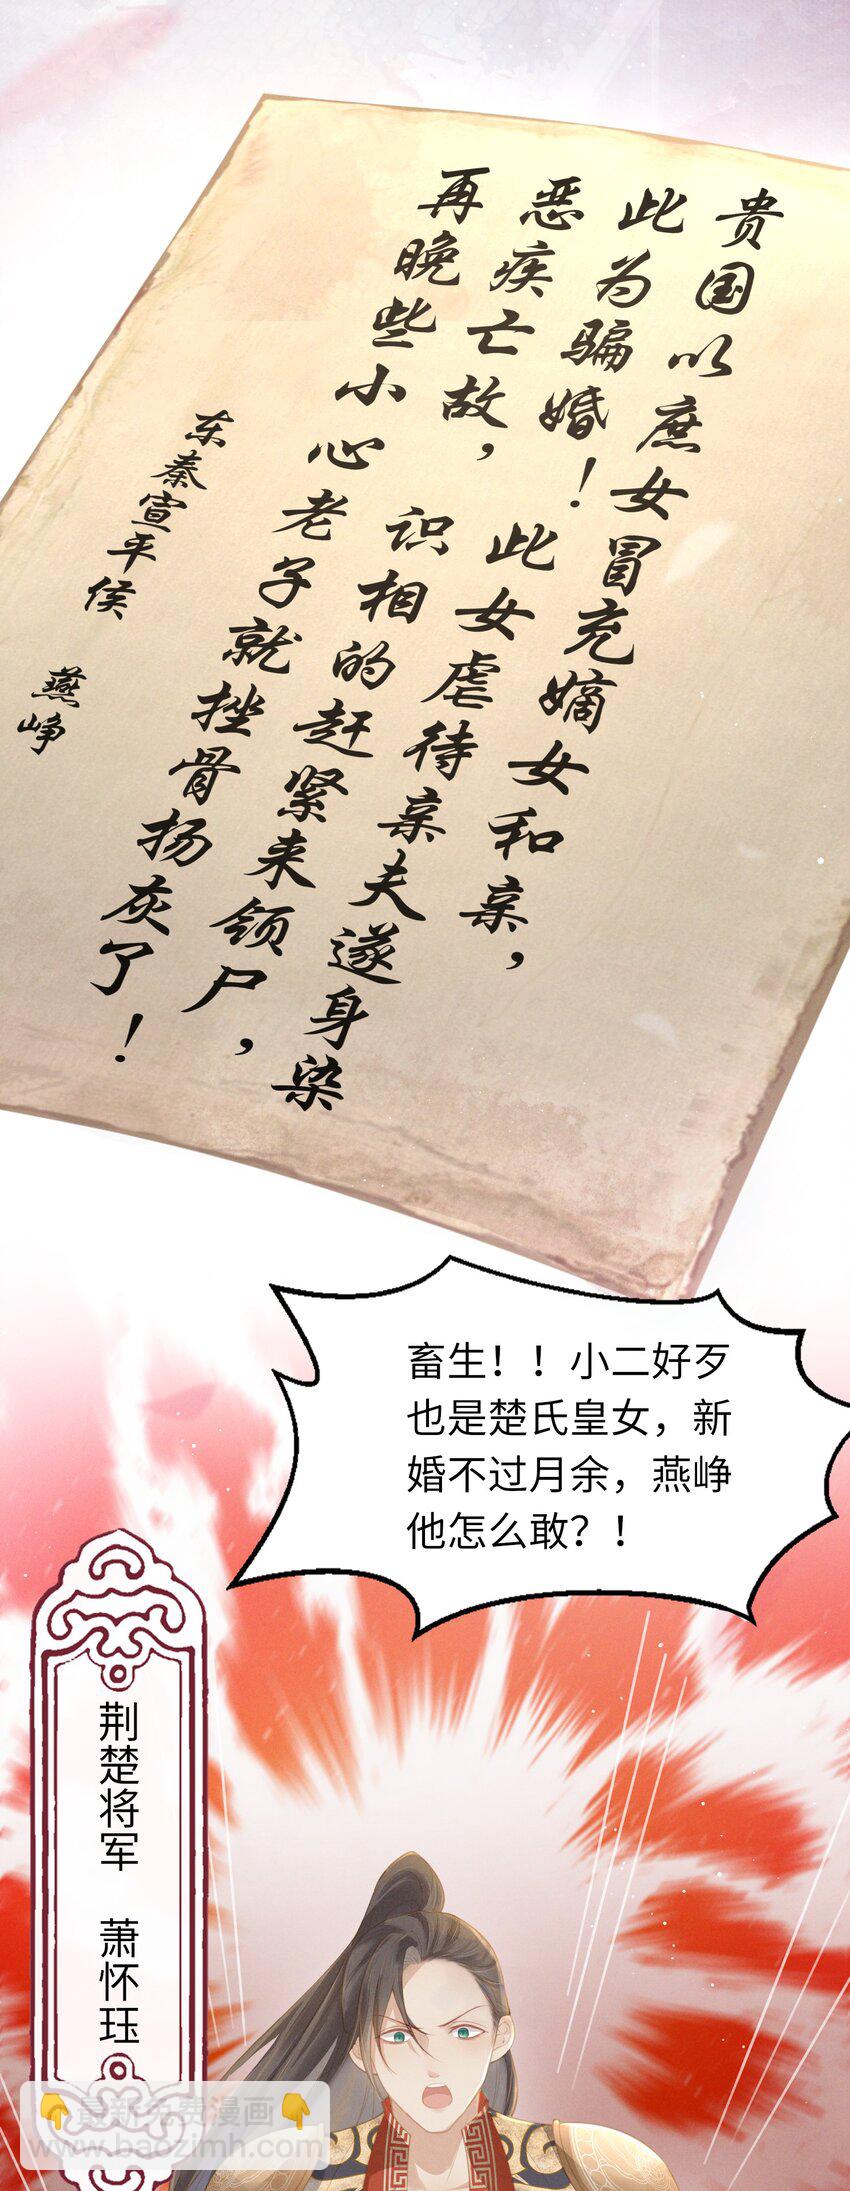 贵国以庶女冒充嫡女和亲，
此为骗婚！此女虐待亲夫遂身染
恶疾亡故，识相的赶紧来领尸，
再晚些小心老子就挫骨扬灰了！
东秦宣平侯 燕峥
畜生！！小二好歹
也是楚氏皇女，新
婚不过月余，燕峥
他怎么敢？！
荆楚将军 萧怀珏
👇最新免费漫画👇
www.baozimh.com